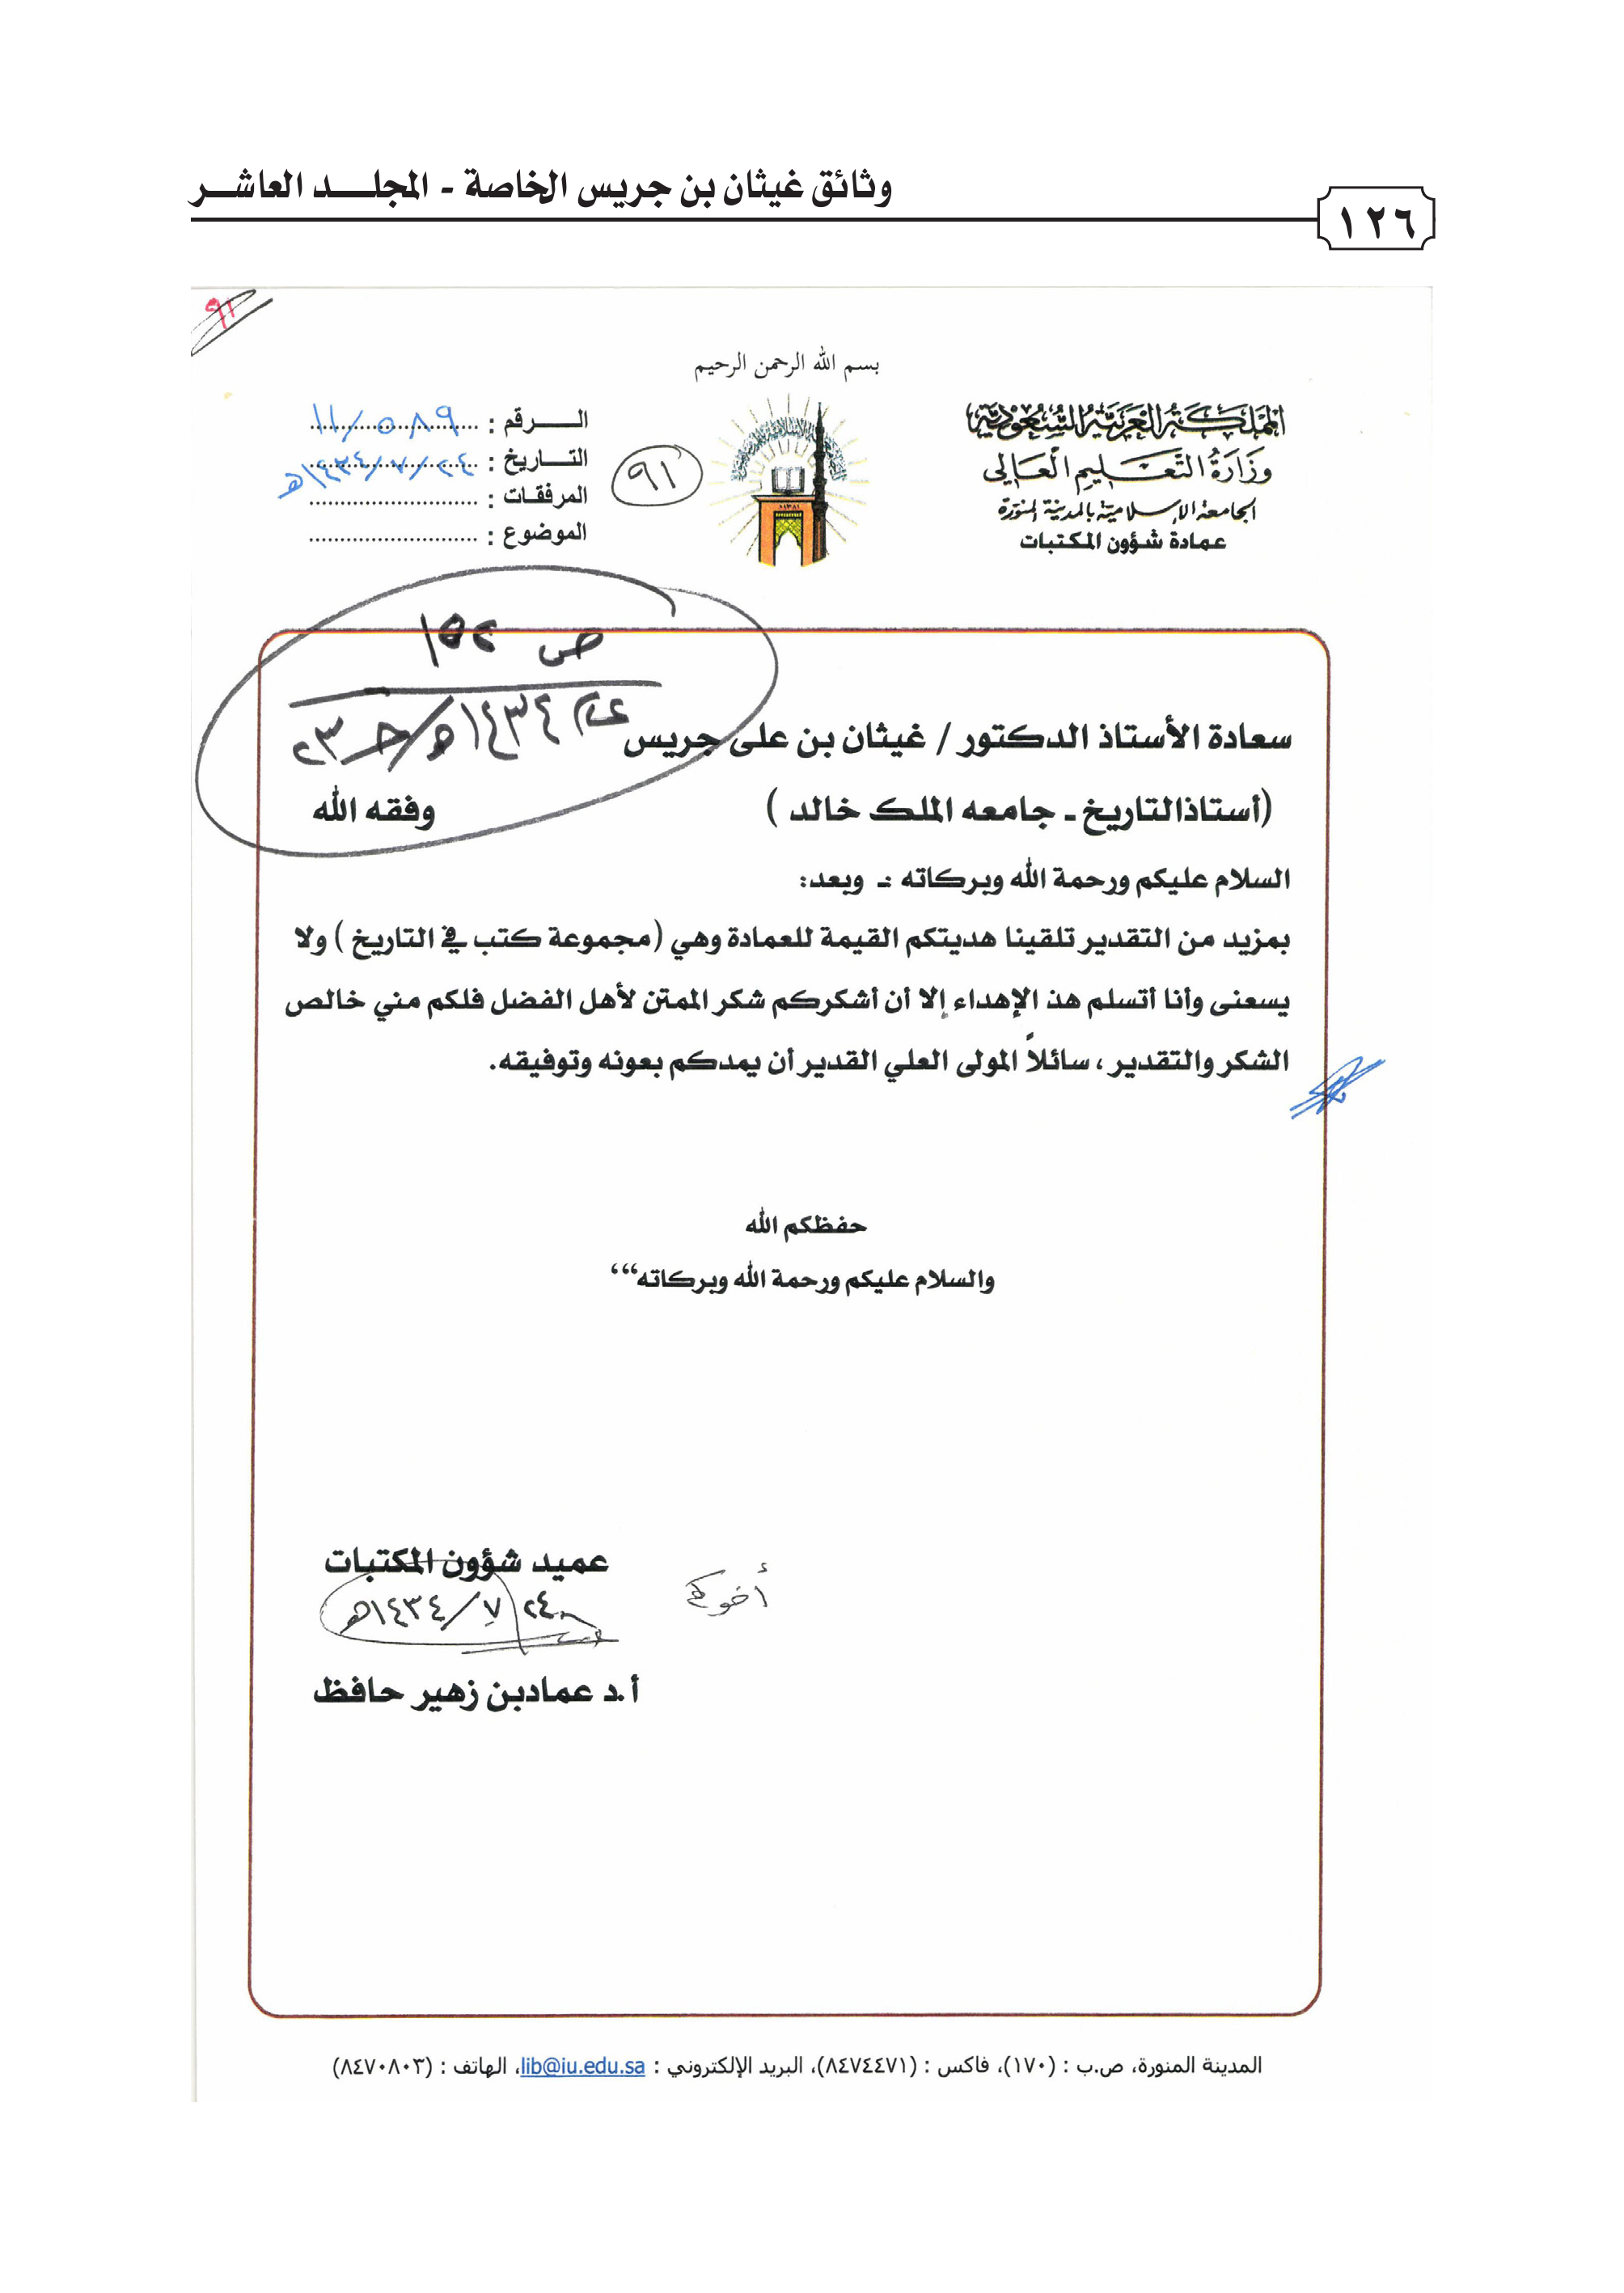 وثائق غيثان بن جريس الخاصة - المجلـــد العاشـــر
١٢٦
٩١
بسم الله الرحمن الرحيم
المملكة العربية السعودية
وزارة التعليم العالي
الجامعة الإسلامية بالمدينة المنورة
عمادة شؤون المكتبات
الـــرقم : ١١/٥٠٨٩
التـــاريخ : ١٤٣٤/٧/٢٤هـ
المرفقـات :
الموضوع :
٩١
ص ١٥٢
عام ١٤٣٤هـ/جـ ٢٣
سعادة الأستاذ الدكتور / غيثان بن على جريس
(أستاذالتاريخ ـ جامعه الملك خالد ) وفقه الله
السلام عليكم ورحمة الله وبركاته ـ وبعد:
بمزيد من التقدير تلقينا هديتكم القيمة للعمادة وهي (مجموعة كتب في التاريخ ) ولا
يسعنى وأنا أتسلم هذ الإهداء إلا أن أشكركم شكر الممتن لأهل الفضل فلكم مني خالص
الشكر والتقدير ، سائلاً المولى العلي القدير أن يمدكم بعونه وتوفيقه.
حفظكم الله
والسلام عليكم ورحمة الله وبركاته،،،
عميد شؤون المكتبات
أخوكم
٢٤/٧/١٤٣٤هـ
أ.د عمادبن زهير حافظ
المدينة المنورة، ص.ب : (١٧٠)، فاكس : (٨٤٧٤٤٧١)، البريد الإلكتروني : lib@iu.edu.sa، الهاتف : (٨٤٧٠٨٠٣)